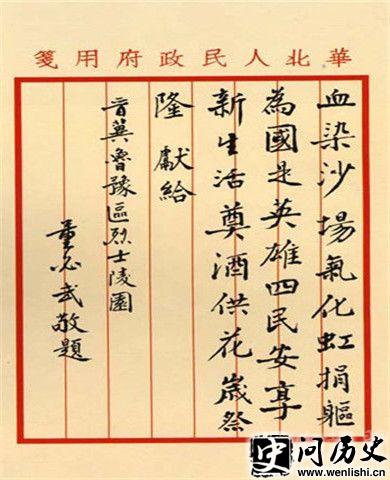 華北人民政府用箋
血染沙場氣化虹捐軀
為國是英雄四民安享
新生活奠酒供花歲祭
隆獻給
晋冀魯豫區烈士陵園
董必武敬題
问历史
www.wenlishi.cn